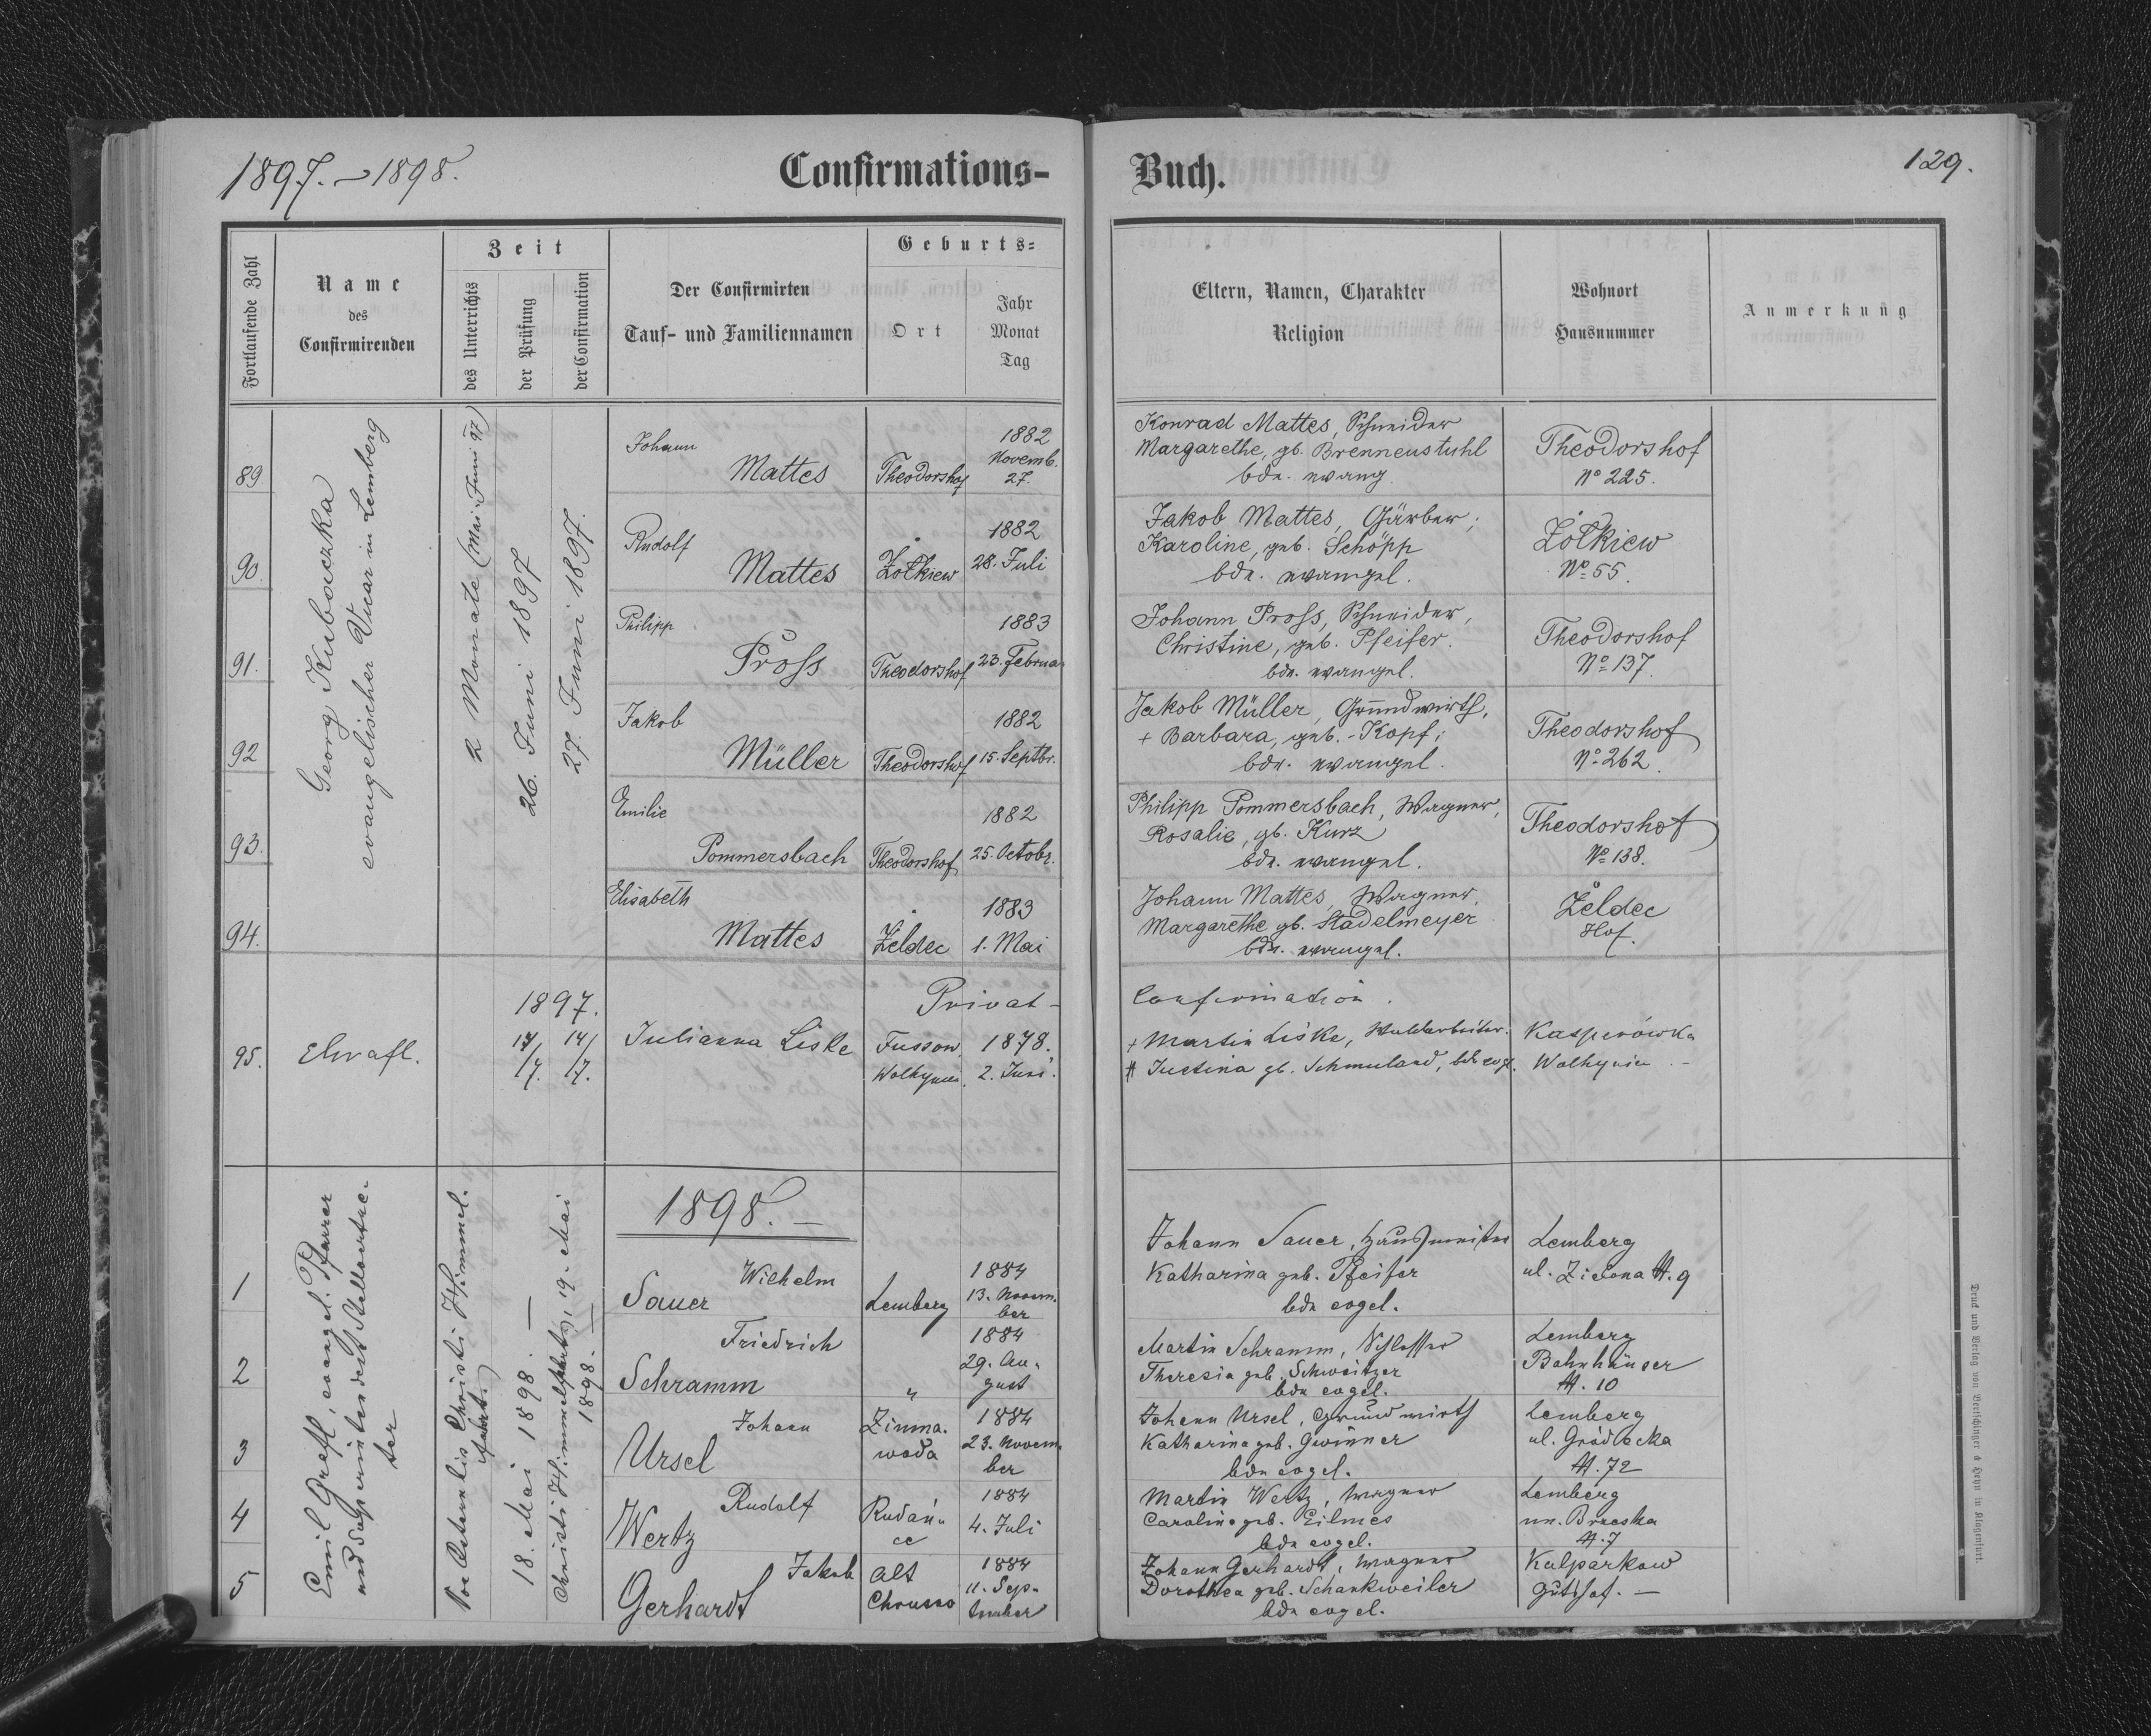 1897. – 1898.
Confirmations-
Buch.
129.
Fortlaufende Zahl
Name
des
Confirmirenden
Zeit
des Unterrichts
der Prüfung
der Confirmation
Der Confirmirten
Tauf- und Familiennamen
Geburts-
Ort
Jahr
Monat
Tag
Eltern, Namen, Charakter
Religion
Wohnort
Hausnummer
Anmerkung
Georg Kubaczka
evangelischer Vicar in Lemberg
2 Monate (Mai-Juni 97)
26. Juni 1897
27. Juni 1897.
89
Johann
Mattes
Theodorshof
1882
Novemb.
27.
Konrad Mattes, Schneider
Margarethe, gb. Brennenstuhl
bde. evang.
Theodorshof
No 225.
90.
Rudolf
Mattes
Żołkiew
1882
28. Juli
Jakob Mattes, Gärber,
Karoline, geb. Schöpp
bde. evangel.
Żołkiew
No 55.
91.
Philipp
Pross
Theodorshof
1883
23. Februa
Johann Pross, Schneider,
Christine, geb. Pfeifer.
bde. evangel.
Theodorshof
No 137.
92
Jakob
Müller
Theodorshof
1882
15. Septbr.
Jakob Müller, Grundwirth,
+ Barbara, geb. Kopf;
bde. evangel.
Theodorshof
No 262.
93.
Emilie
Pommersbach
Theodorshof
1882
25. Octobr.
Philipp Pommersbach, Wagner,
Rosalie, gb. Kurz
bde. evangel.
Theodorshof
No 138.
94.
Elisabeth
Mattes
Żeldec
1883
1. Mai
Johann Mattes, Wagner,
Margarethe gb. Stadelmeyer
bde. evangel.
Żeldec
Hof.
1897.
Privat-
Confirmation.
95.
14/
/7.
/7.
Julianna Liske
Wolhynien.
1878.
2. Juni.
+ Martin Liske, Waldarbeiter.
Justina gb. Schmuland, bde evgl.
Kasperówka
Wolhynien
1898. –
Emil Grefl, evangel. Pfarrer
und Superintendent Stellvertre-
ter
Christi Himmel-
fahrt
18. Mai 1898. –
Christi Himmelfahrt, 19. Mai
1898. –
1
Wilhelm
Sauer
Lemberg
1884
13. Novem-
ber
Johann Sauer, Hausmeister
Katharina geb. Pfeifer
bde evgel.
Lemberg
ul. Zielona N. 9
2
Friedrich
Schramm
"
1884
29. Au-
gust
Martin Schramm, Schlosser
Theresia geb. Schweitzer
bde evgel.
Lemberg
Bahnhäuser
N. 10
3
Johann
Ursel
Zimna-
woda
1884
23. Novem-
ber
Johann Ursel, Grundwirth
Katharina geb. Gwinner
bde evgel.
Lemberg
ul. Gródecka
N. 72
4
Rudolf
Wertz
Rudań-
ce
1884
4. Juli
Martin Wertz, Wagner
Caroline geb. Eilmes
bde evgel.
Lemberg
N. 7
5
Jakob
Gerhardt
Alt
Chrusno
1884
11. Sep-
tember
Johann Gerhardt, Wagner
Dorothea geb. Schankweiler
bde evgel.
Kulparkow
Gutshof. –
Druck und Verlag von Bertschinger & Heyn in Klagenfurt.